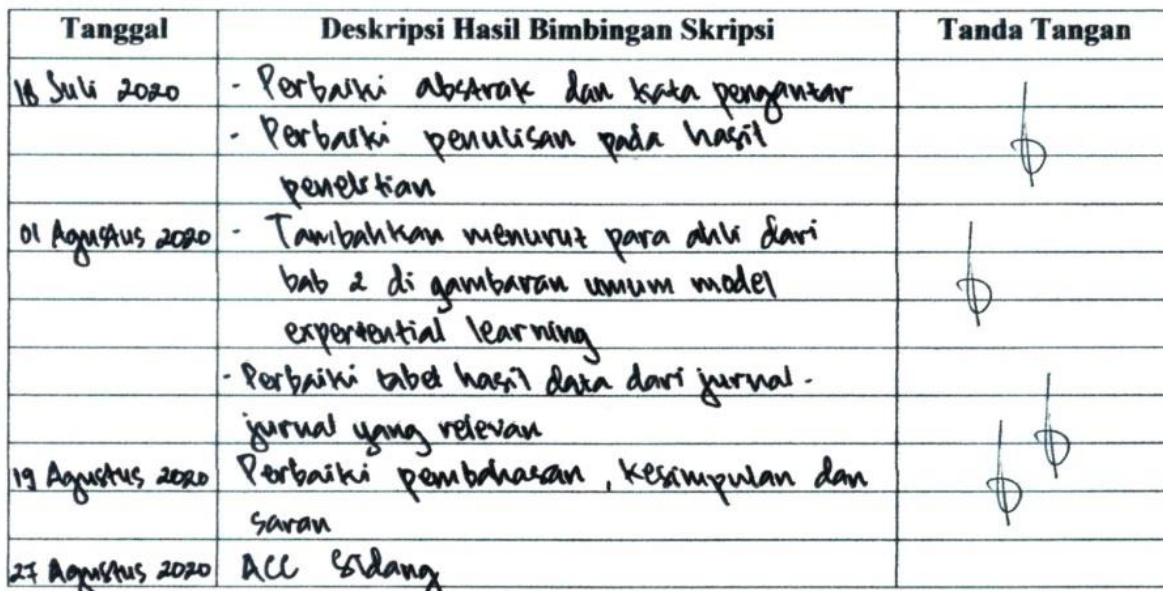 Tanggal Deskripsi Hasil Bimbingan Skripsi Tanda Tangan
18 Juli 2020 - Perbaiki abstrak dan kata pengantar
- Perbaiki penulisan pada hasil
penelitian
01 Agustus 2020 - Tambahkan menurut para ahli dari
bab 2 di gambaran umum model
experiential learning
- Perbaiki tabel hasil data dari jurnal-
jurnal yang relevan
19 Agustus 2020 Perbaiki pembahasan, kesimpulan dan
saran
27 Agustus 2020 ACC Sidang